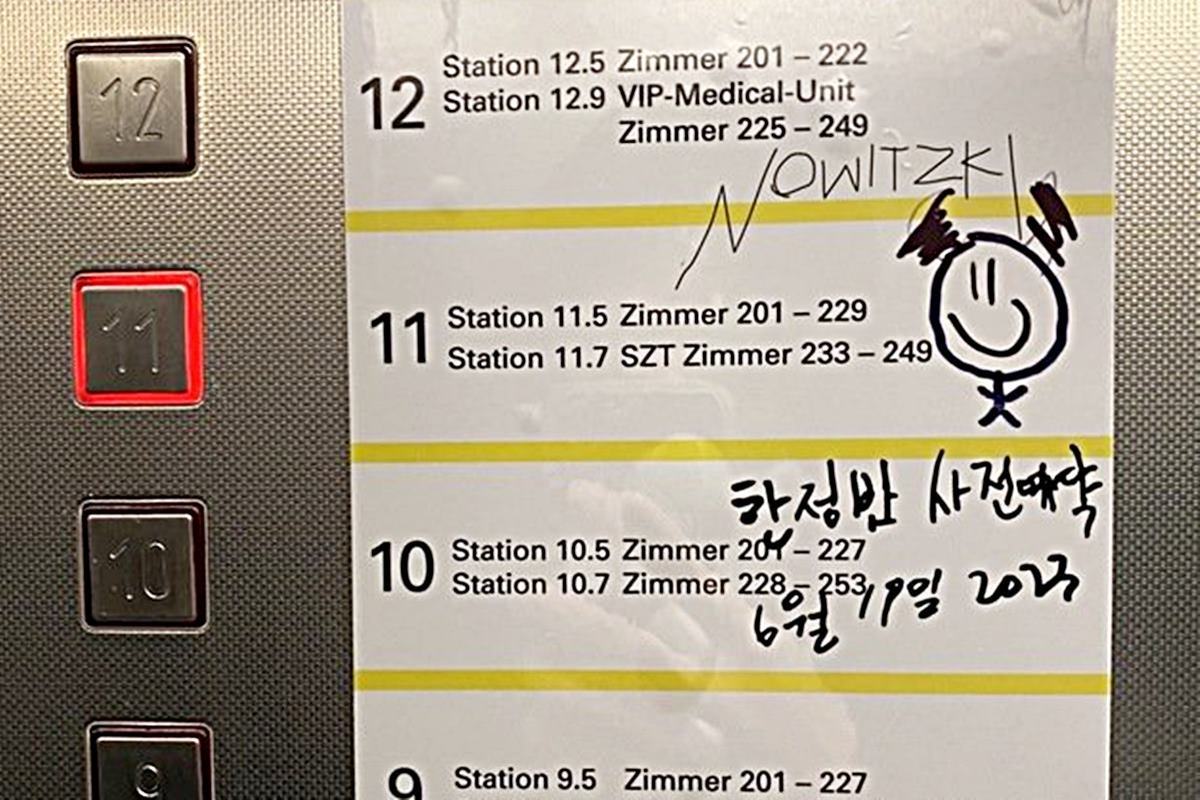 12
12 Station 12.5 Zimmer 201 – 222
Station 12.9 VIP-Medical-Unit
Zimmer 225 – 249
NOWITZKI
11
11 Station 11.5 Zimmer 201 – 229
Station 11.7 SZT Zimmer 233 – 249
사전예약
10
10 Station 10.5 Zimmer 201 – 227
Station 10.7 Zimmer 228 – 253
6월 19일 2023
9
9 Station 9.5 Zimmer 201 – 227